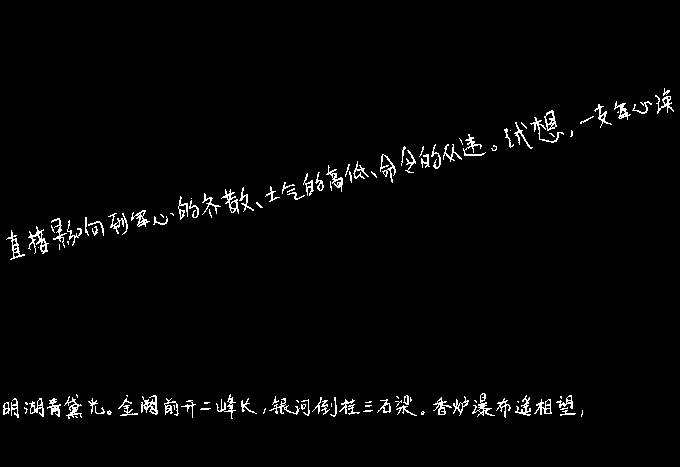 直接影响到军心的齐散、士气的高低、命令的从违。试想，一支军心涣
明湖青黛光。金阙前开二峰长，银河倒挂三石梁。香炉瀑布遥相望，